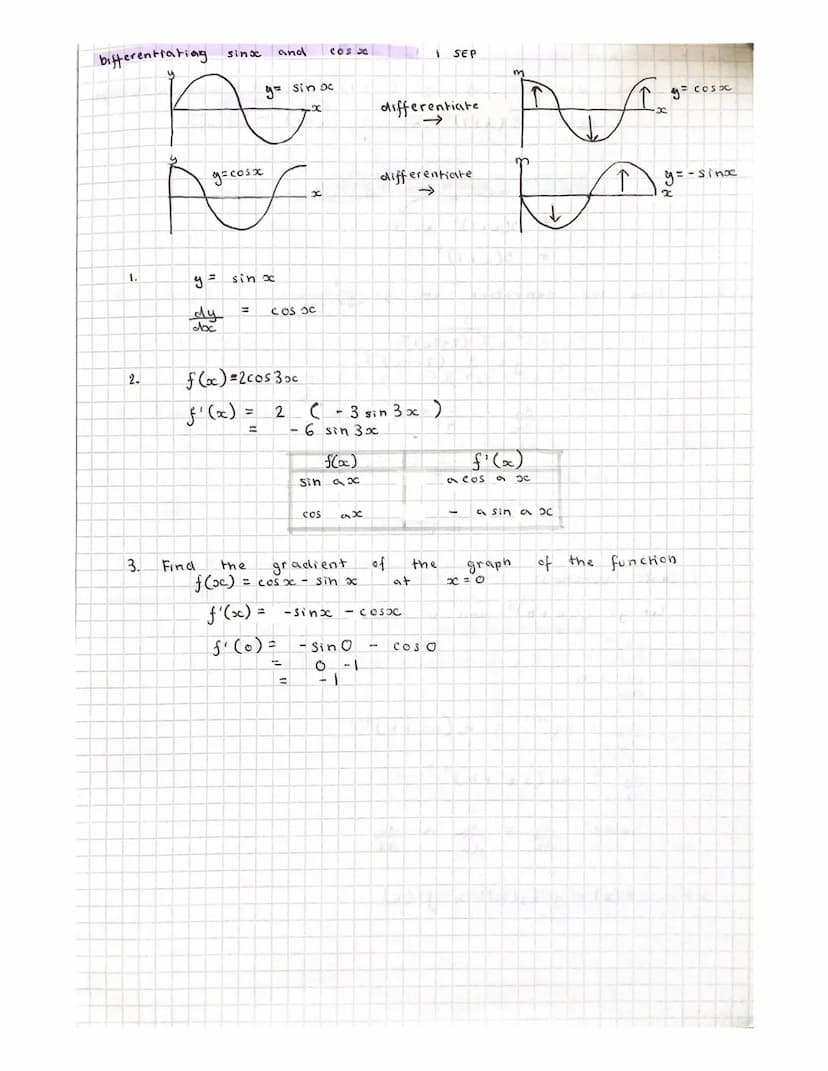 Differentiating sinx and cosx 1 SEP
y
y = sin x
x
differentiate
→
m
y = cosx
x
y
y=cosx
x
differentiate
→
m
y = - sinx
x
1. y = sin x
dy/dx = cos x
2. f(x)=2cos3x
f'(x) = 2 ( - 3 sin 3x )
= - 6 sin 3x
f(x) f'(x)
sin ax a cos a x
cos ax - a sin a x
3. Find the gradient of the graph of the function
f(x) = cosx - sin x at x = 0
f'(x) = -sinx - cosx
f'(0) = - sin 0 - cos 0
= 0 - 1
= - 1